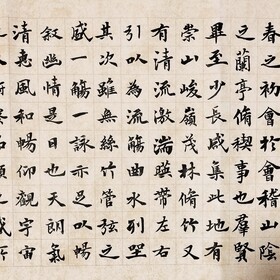 春之初會於會稽山陰
之蘭亭脩禊事也羣賢
畢至少長咸集此地有
崇山峻嶺茂林脩竹又
有清流激湍暎帶左右
引以為流觴曲水列坐
其次雖無絲竹管弦之
盛一觴一詠亦足以暢
叙幽情是日也天朗氣
清惠風和暢仰觀宇宙